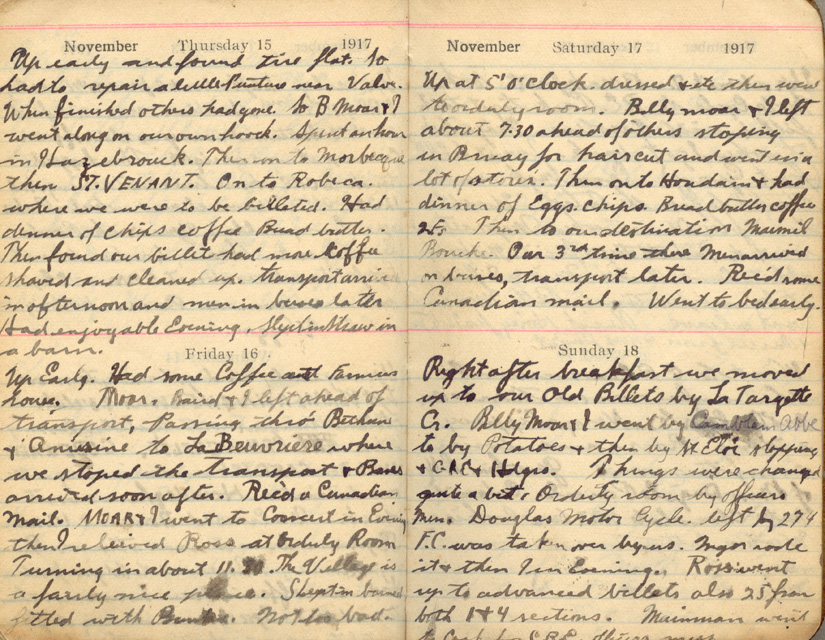 November Thursday 15 1917
Up early and found tire flat. So
had to repair a little Puncture near Valve.
When finished others had gone. So B Moar & I
went along on our own hook. Spent an hour
in Hazebrouck. Then on to Morbecque
then ST. VENANT. On to Robeca.
where we were to be billeted. Had
dinner of chips coffee Bread butter.
Then found our billets had more Coffee
shaved and cleaned up. transport arrived
in afternoon and men in buses later
Had enjoyable Evening. Slept in Straw in
a barn.
Friday 16
Up Early. Had some Coffee at Farmers
house. Moar. Baird & I left ahead of
transport, Passing thro' Bethune
& Anuzine to La Beuvriere where
we stoped the transport & Band
arrived soon after. Rec'd a Canadian
mail. MOAR & I went to Concert in Evening
then I relieved Ross at Orderly Room
Turning in about 11.30 The Village is
a fairly nice place. Slept in
fitted with Bunks. Not too bad.
November Saturday 17 1917
Up at 5 O'Clock. dressed & etc then went
to orderly room. Billy moar & I left
about 7.30 ahead of others stoping
in Bruay for haircut and went in a
lot of stores. Then on to Houdain & had
dinner of Eggs. chips. Bread butter coffee
Then to our destination Maisnil
Bouche. Our 3rd time there Men arrived
on buses, transport later. Rec'd some
Canadian mail. Went to bed early.
Sunday 18
Right after breakfast we moved
up to our Old Billets by La Targette
Billy Moar & I went by Camblain Abbe
to by Potatoes & then by St Eloi stopping
Things were changed
quite a bit. Orderly room by officers
Mess. Douglas Motor Cycle. left by 274
F.C. was taken over by us. rode
it & then I in Evening. Ross went
up to advanced billets also 25 from
both 1 & 4 sections. went